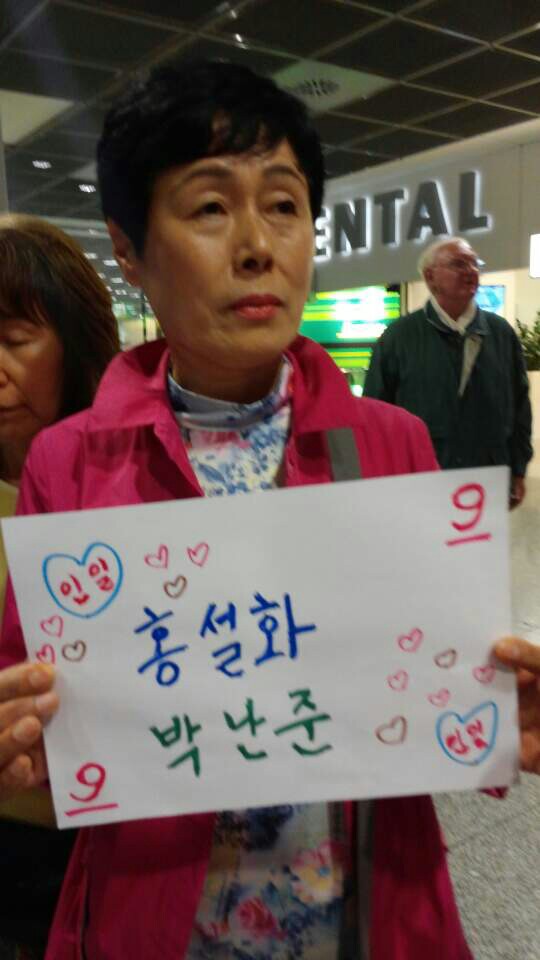 ENTAL
9
인일
홍설화
박난준
인일
9